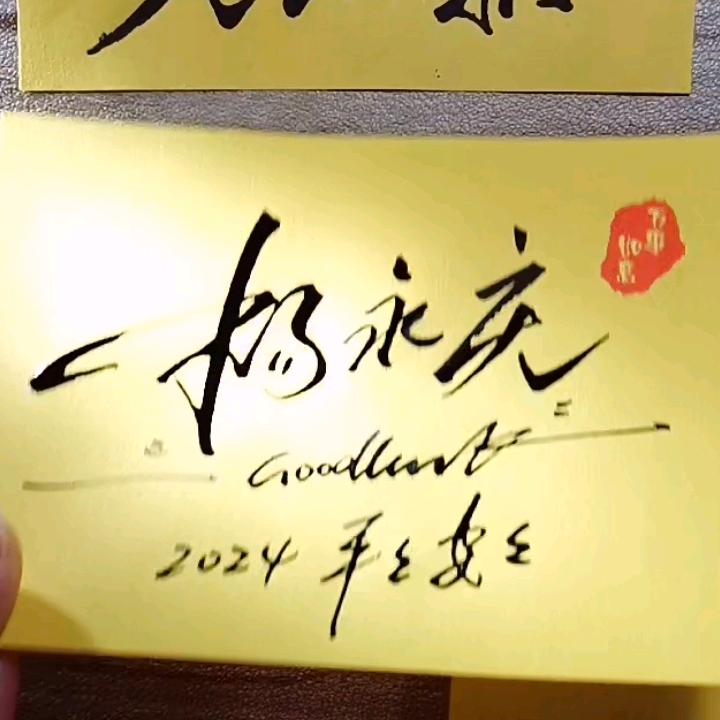 杨永庆
Goodluck
2024 平平安安
万事
如意